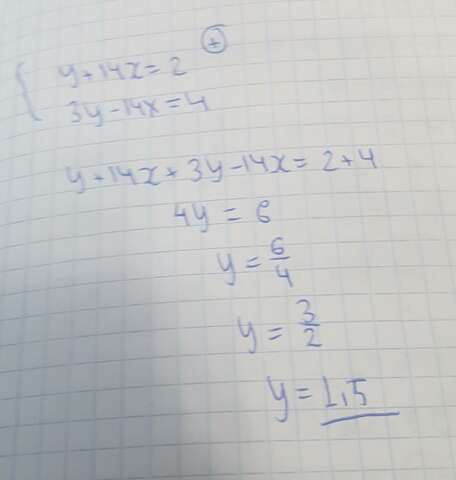 ⊕
y+14x=2
3y-14x=4
y+14x+3y-14x=2+4
4y=6
y=6/4
y=3/2
y=1,5